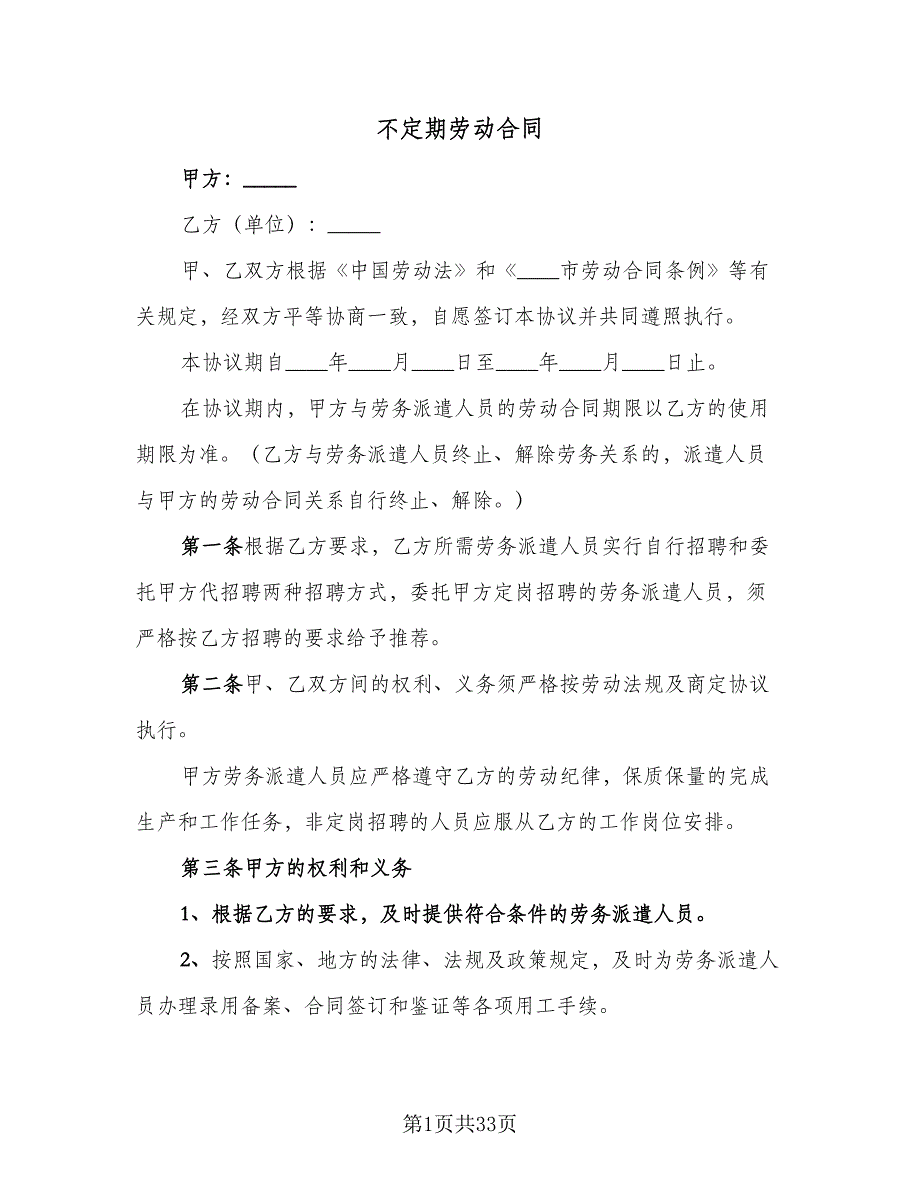 不定期劳动合同
甲方：_____
乙方（单位）：_____
甲、乙双方根据《中国劳动法》和《____市劳动合同条例》等有
关规定，经双方平等协商一致，自愿签订本协议并共同遵照执行。
本协议期自____年____月____日至____年____月____日止。
在协议期内，甲方与劳务派遣人员的劳动合同期限以乙方的使用
期限为准。（乙方与劳务派遣人员终止、解除劳务关系的，派遣人员
与甲方的劳动合同关系自行终止、解除。）
第一条根据乙方要求，乙方所需劳务派遣人员实行自行招聘和委
托甲方代招聘两种招聘方式，委托甲方定岗招聘的劳务派遣人员，须
严格按乙方招聘的要求给予推荐。
第二条甲、乙双方间的权利、义务须严格按劳动法规及商定协议
执行。
甲方劳务派遣人员应严格遵守乙方的劳动纪律，保质保量的完成
生产和工作任务，非定岗招聘的人员应服从乙方的工作岗位安排。
第三条甲方的权利和义务
1、根据乙方的要求，及时提供符合条件的劳务派遣人员。
2、按照国家、地方的法律、法规及政策规定，及时为劳务派遣人
员办理录用备案、合同签订和鉴证等各项用工手续。
第1页共33页